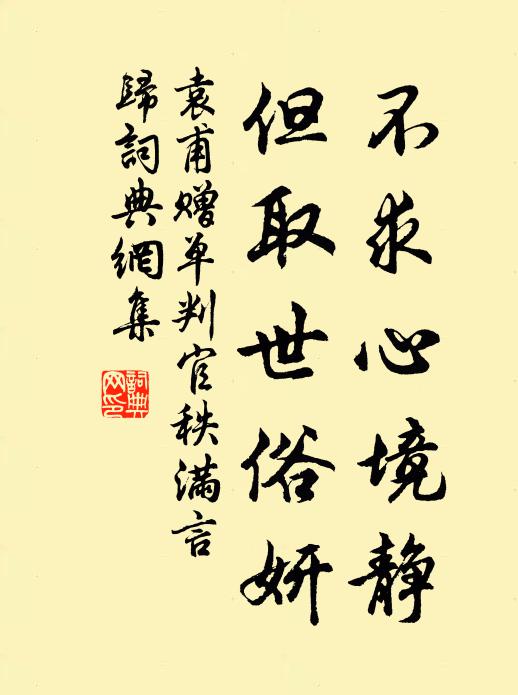 不求心境静
但取世俗妍
袁甫赠单判官秩满言
歸詞典網集
詞典
网印